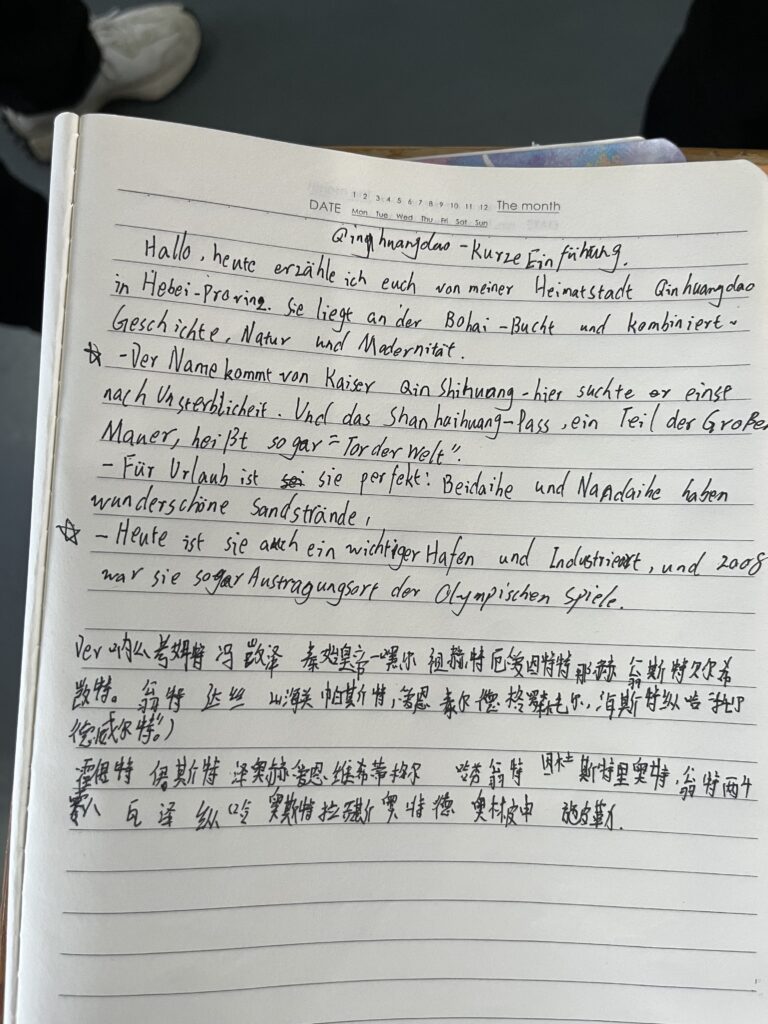 1 2 3 4 5 6 7 8 9 10 11 12
DATE Mon Tue Wed Thu Fri Sat Sun The month
Qinghuangdao - Kurze Einführung.
Hallo, heute erzähle ich euch von meiner Heimatstadt Qinhuangdao
in Hebei-Provinz. Sie liegt an der Bohai-Bucht und kombiniert
Geschichte, Natur und Modernität.
☆ - Der Name kommt von Kaiser Qin Shihuang - hier suchte er einse
nach Unsterblicheit. Und das Shanhaihuang-Pass, ein Teil der Großen
Mauer, heißt sogar "Tor der Welt".
- Für Urlaub ist sie perfekt: Beidaihe und Nandaihe haben
wunderschöne Sandstrände,
☆ - Heute ist sie auch ein wichtiger Hafen und Industrieort, und 2008
war sie sogar Austragungsort der Olympischen Spiele.
Der 呐么 考姆特 冯 凯泽 秦始皇帝一嘿尔 祖赫特 厄 爱因特特 那赫 翁斯特欠尔希
凯特。翁特 达丝 山海关 帕斯特,爱恩 泰尔 德 格罗森毛尔,海斯特纵哈
德威尔特")
霍伊特 伊斯特 泽奥赫爱恩 维希蒂格尔 哈芬 翁特 斯特里奥特,翁特两千
零八 瓦 泽 纵哈 奥斯特拉 斯奥特德 奥林皮申 施皮勒.